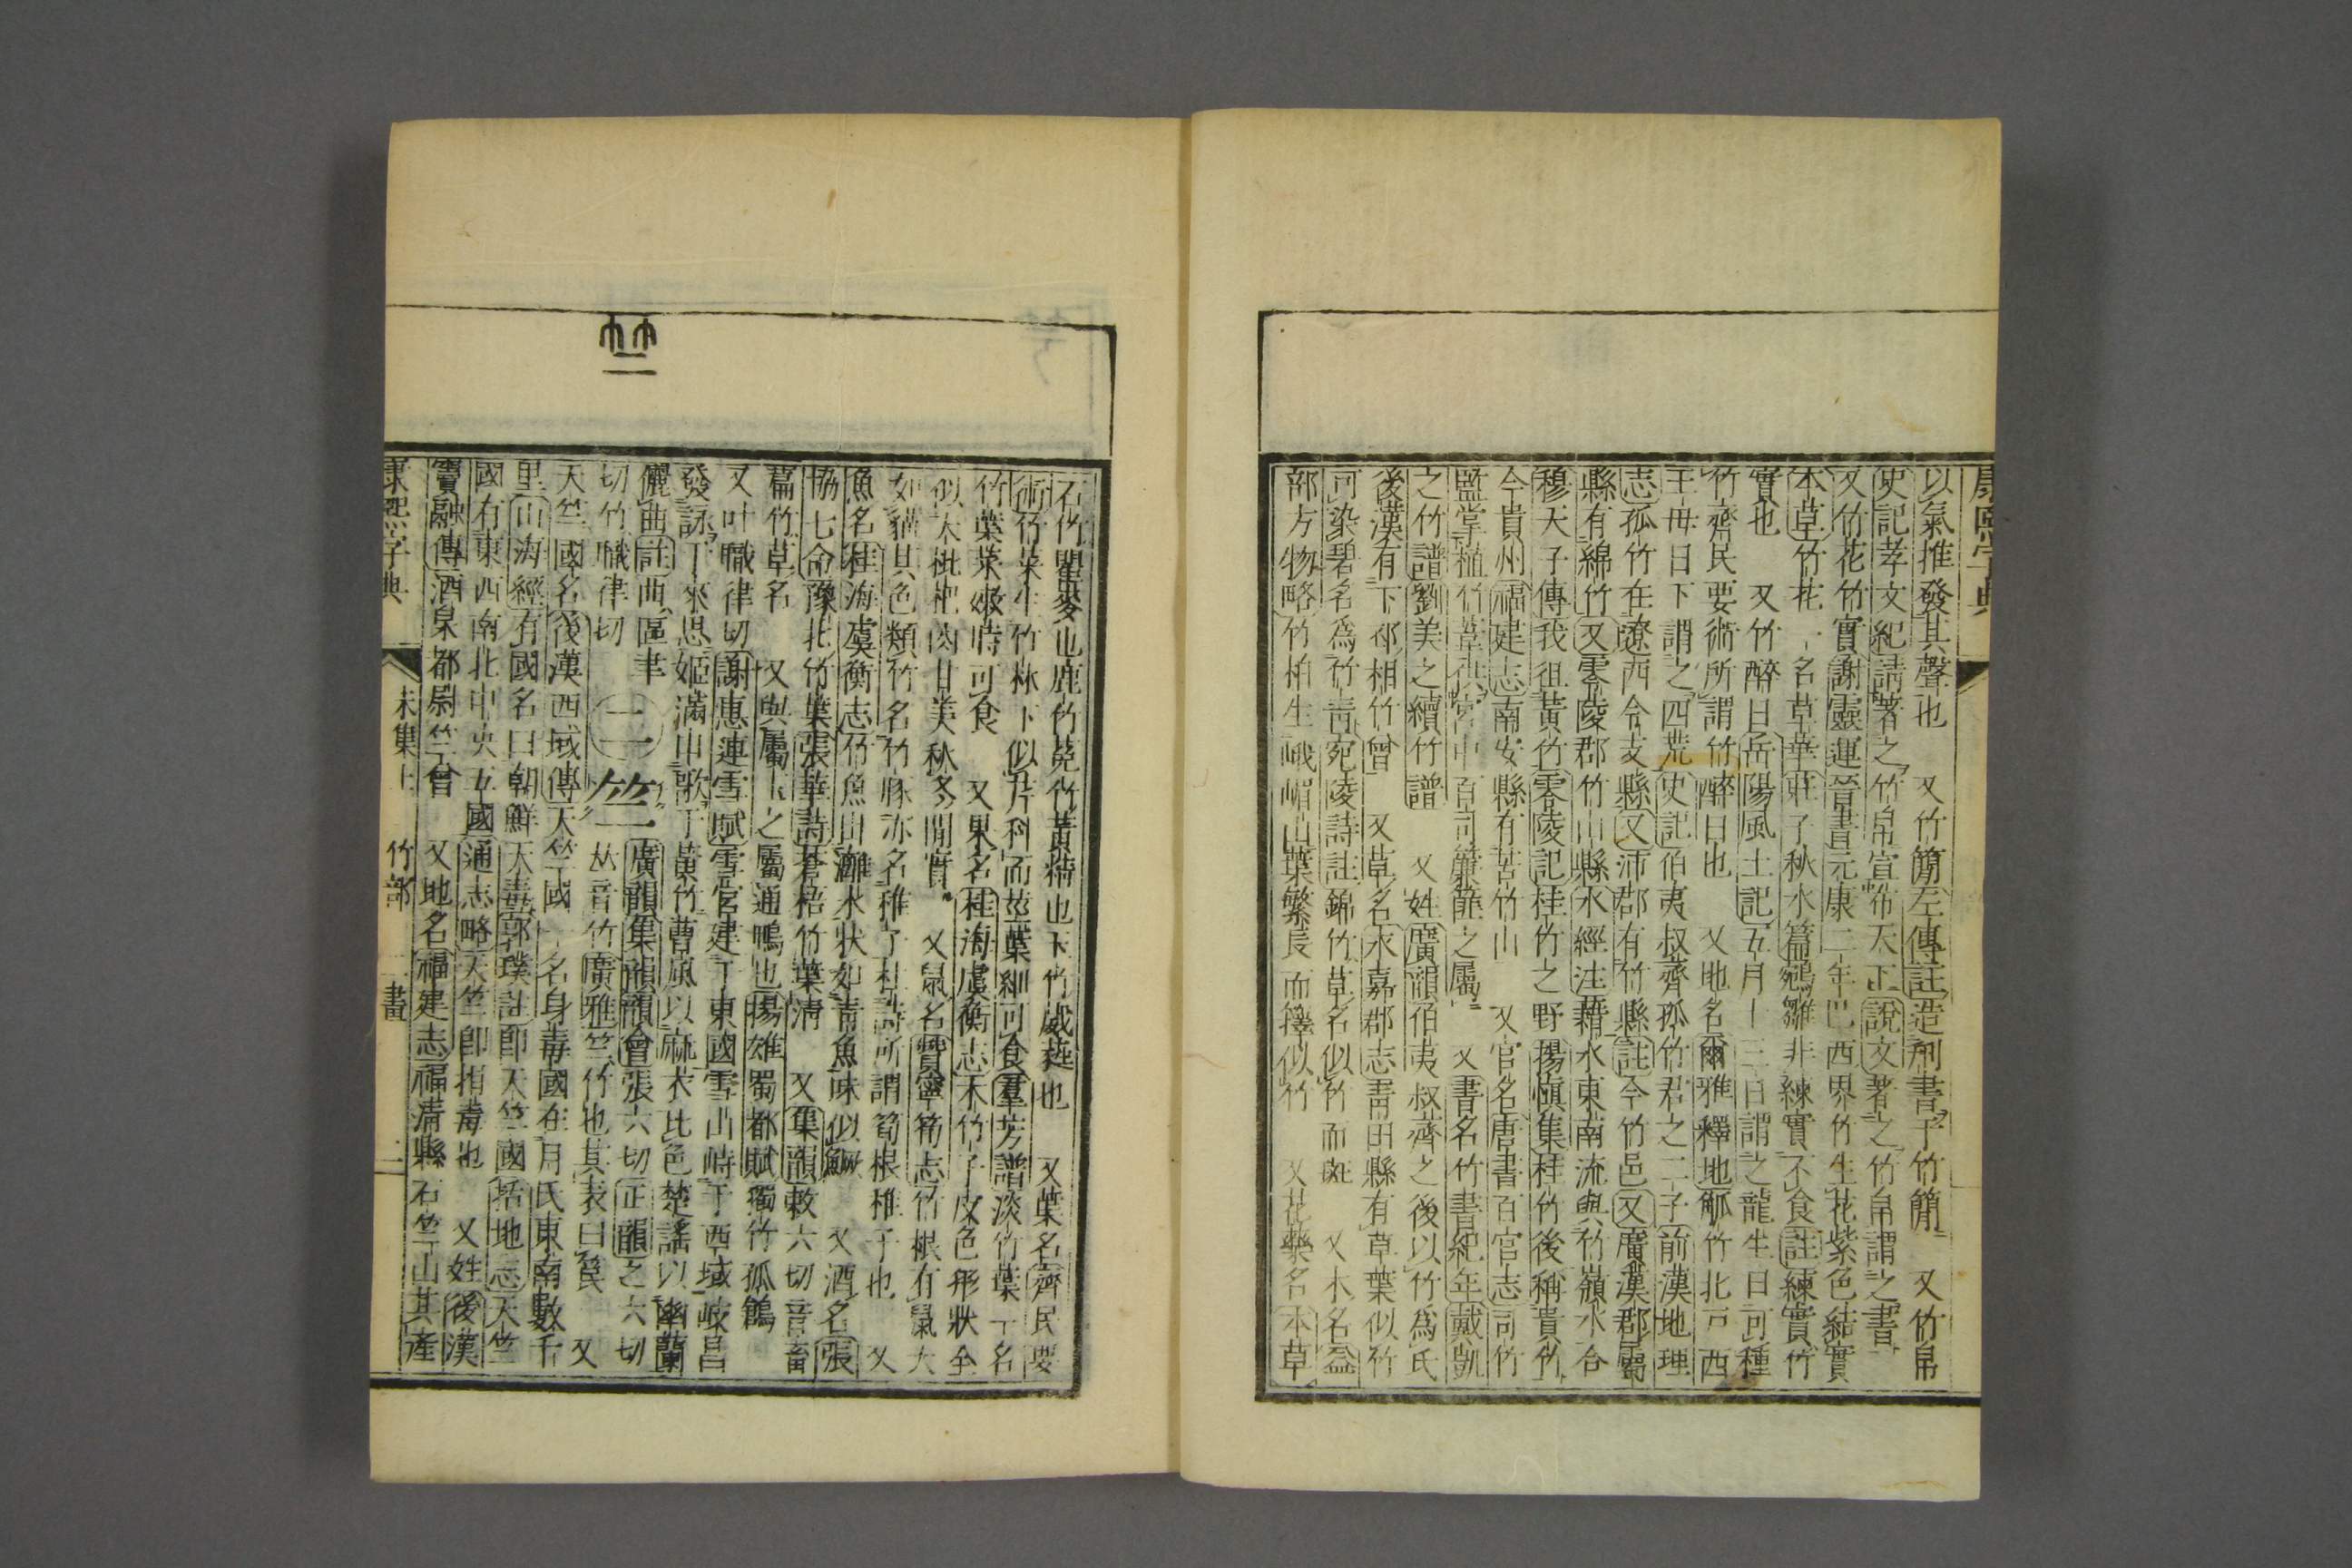 康熙字典
以氣推發其聲也 又竹簡左傳註造刑書于竹簡 又竹帛
史記孝文紀請著之竹帛宣布天下說文著之竹帛謂之書
又竹花竹實謝靈運晉書元康二年巴西界竹生花紫色結實
本草竹花一名草華莊子秋水篇鵷雛非練實不食註練實竹
實也 又竹醉日岳陽風土記五月十三日謂之龍生日可種
竹齊民要術所謂竹醉日也 又地名爾雅釋地觚竹北戸西
王母日下謂之四荒史記伯夷叔齊孤竹君之二子前漢地理
志孤竹在遼西令支縣又沛郡有竹縣註今竹邑又廣漢郡屬
縣有綿竹又零陵郡竹山縣水經注藉水東南流與竹嶺水合
穆天子傳我徂黃竹零陵記桂竹之野揚愼集桂竹後稱貴竹
今貴州福建志南安縣有苦竹山 又官名唐書百官志司竹
監掌植竹葦供宮中百司簾篚之屬 又書名竹書紀年戴凱
之竹譜劉美之續竹譜 又姓廣韻伯夷叔齊之後以竹爲氏
後漢有下邳相竹曾 又草名永嘉郡志靑田縣有草葉似竹
可染碧名爲竹靑宛陵詩註錦竹草名似竹而斑 又木名益
部方物略竹柏生峨嵋山葉繁長而籜似竹 又花藥名本草
石竹瞿麥也鹿竹菟竹黃精也玉竹葳蕤也 又菜名齊民要
術竹菜生竹林下似芹科而莖葉細可食羣芳譜淡竹葉一名
竹葉菜嫩時可食 又果名桂海虞衡志木竹子皮色形狀全
似大枇杷肉甘美秋冬閒實 又鼠名贊寧筍志竹根有鼠大
如貓其色類竹名竹豚亦名稚子杜詩所謂筍根稚子也 又
魚名桂海虞衡志竹魚出灕水狀如靑魚味似鱖 又酒名張
協七命豫北竹葉張華詩蒼梧竹葉淸 又集韻敕六切音畜
萹竹草名 又與屬玉之屬通鴨也揚雄蜀都賦獨竹孤鶬
又叶職律切謝惠連雪賦雪宮建于東國雪山峙于西域岐昌
發詠于來思姬滿申歌于黃竹曹風以麻衣比色楚謠以幽蘭
儷曲註曲區聿
切竹職律切 二 竺 廣韻集韻韻會張六切正韻之六切𠀤音竹廣雅竺竹也其表曰笢 又
天竺國名後漢西域傳天竺國一名身毒國在月氏東南數千
里山海經有國名曰朝鮮天毒郭璞註卽天竺國括地志天竺
國有東西南北中央五國通志略天竺卽捐毒也 又姓後漢
竇融傳酒泉都尉竺曾 又地名福建志福淸縣石竺山其產
康熙字典 未集上 竹部 二畫 二
竺